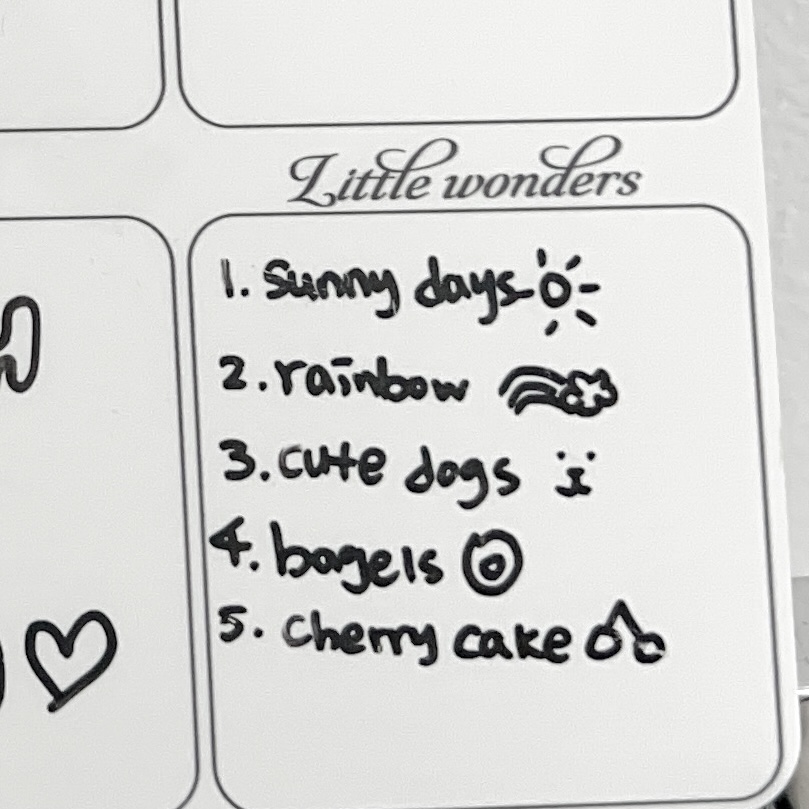 Little wonders
1. sunny days
2. rainbow
3. cute dogs
4. bagels
5. cherry cake